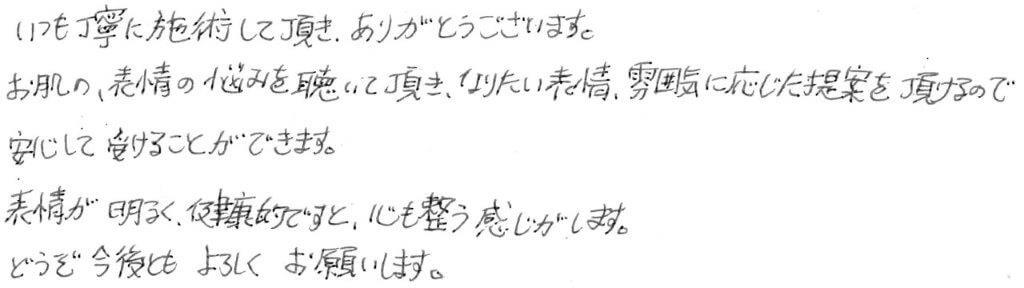 いつも丁寧に施術して頂き、ありがとうございます。
お肌の、表情の悩みを聴いて頂き、なりたい表情、雰囲気に応じた提案を頂けるので
安心して受けることができます。
表情が明るく、健康的ですと、心も整う感じがします。
どうぞ今後とも よろしく お願いします。